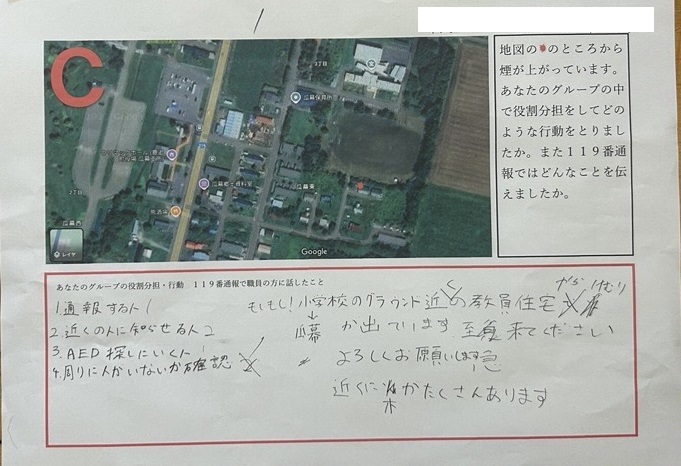 C
地図の のところから
煙が上がっています。
あなたのグループの中
で役割分担をしてどの
ような行動をとりまし
たか。また119番通
報ではどんなことを伝
えましたか。
3丁目
2丁目
瓜幕保育所
瓜幕郷土資料室
瓜幕東
3丁目
瓜幕西
レイヤ
Google
あなたのグループの役割分担・行動 119番通報で職員の方に話したこと
1 通報する人 1
2. 近くの人に知らせる人 2
3. AED探しにいく人 1
4. 周りに人がいないか確認
もしもし!小学校のグラウンド近くの教員住宅 から けむり
瓜幕
が出ています 至急 来てください
よろしくお願いします 急
近くに 木がたくさんあります